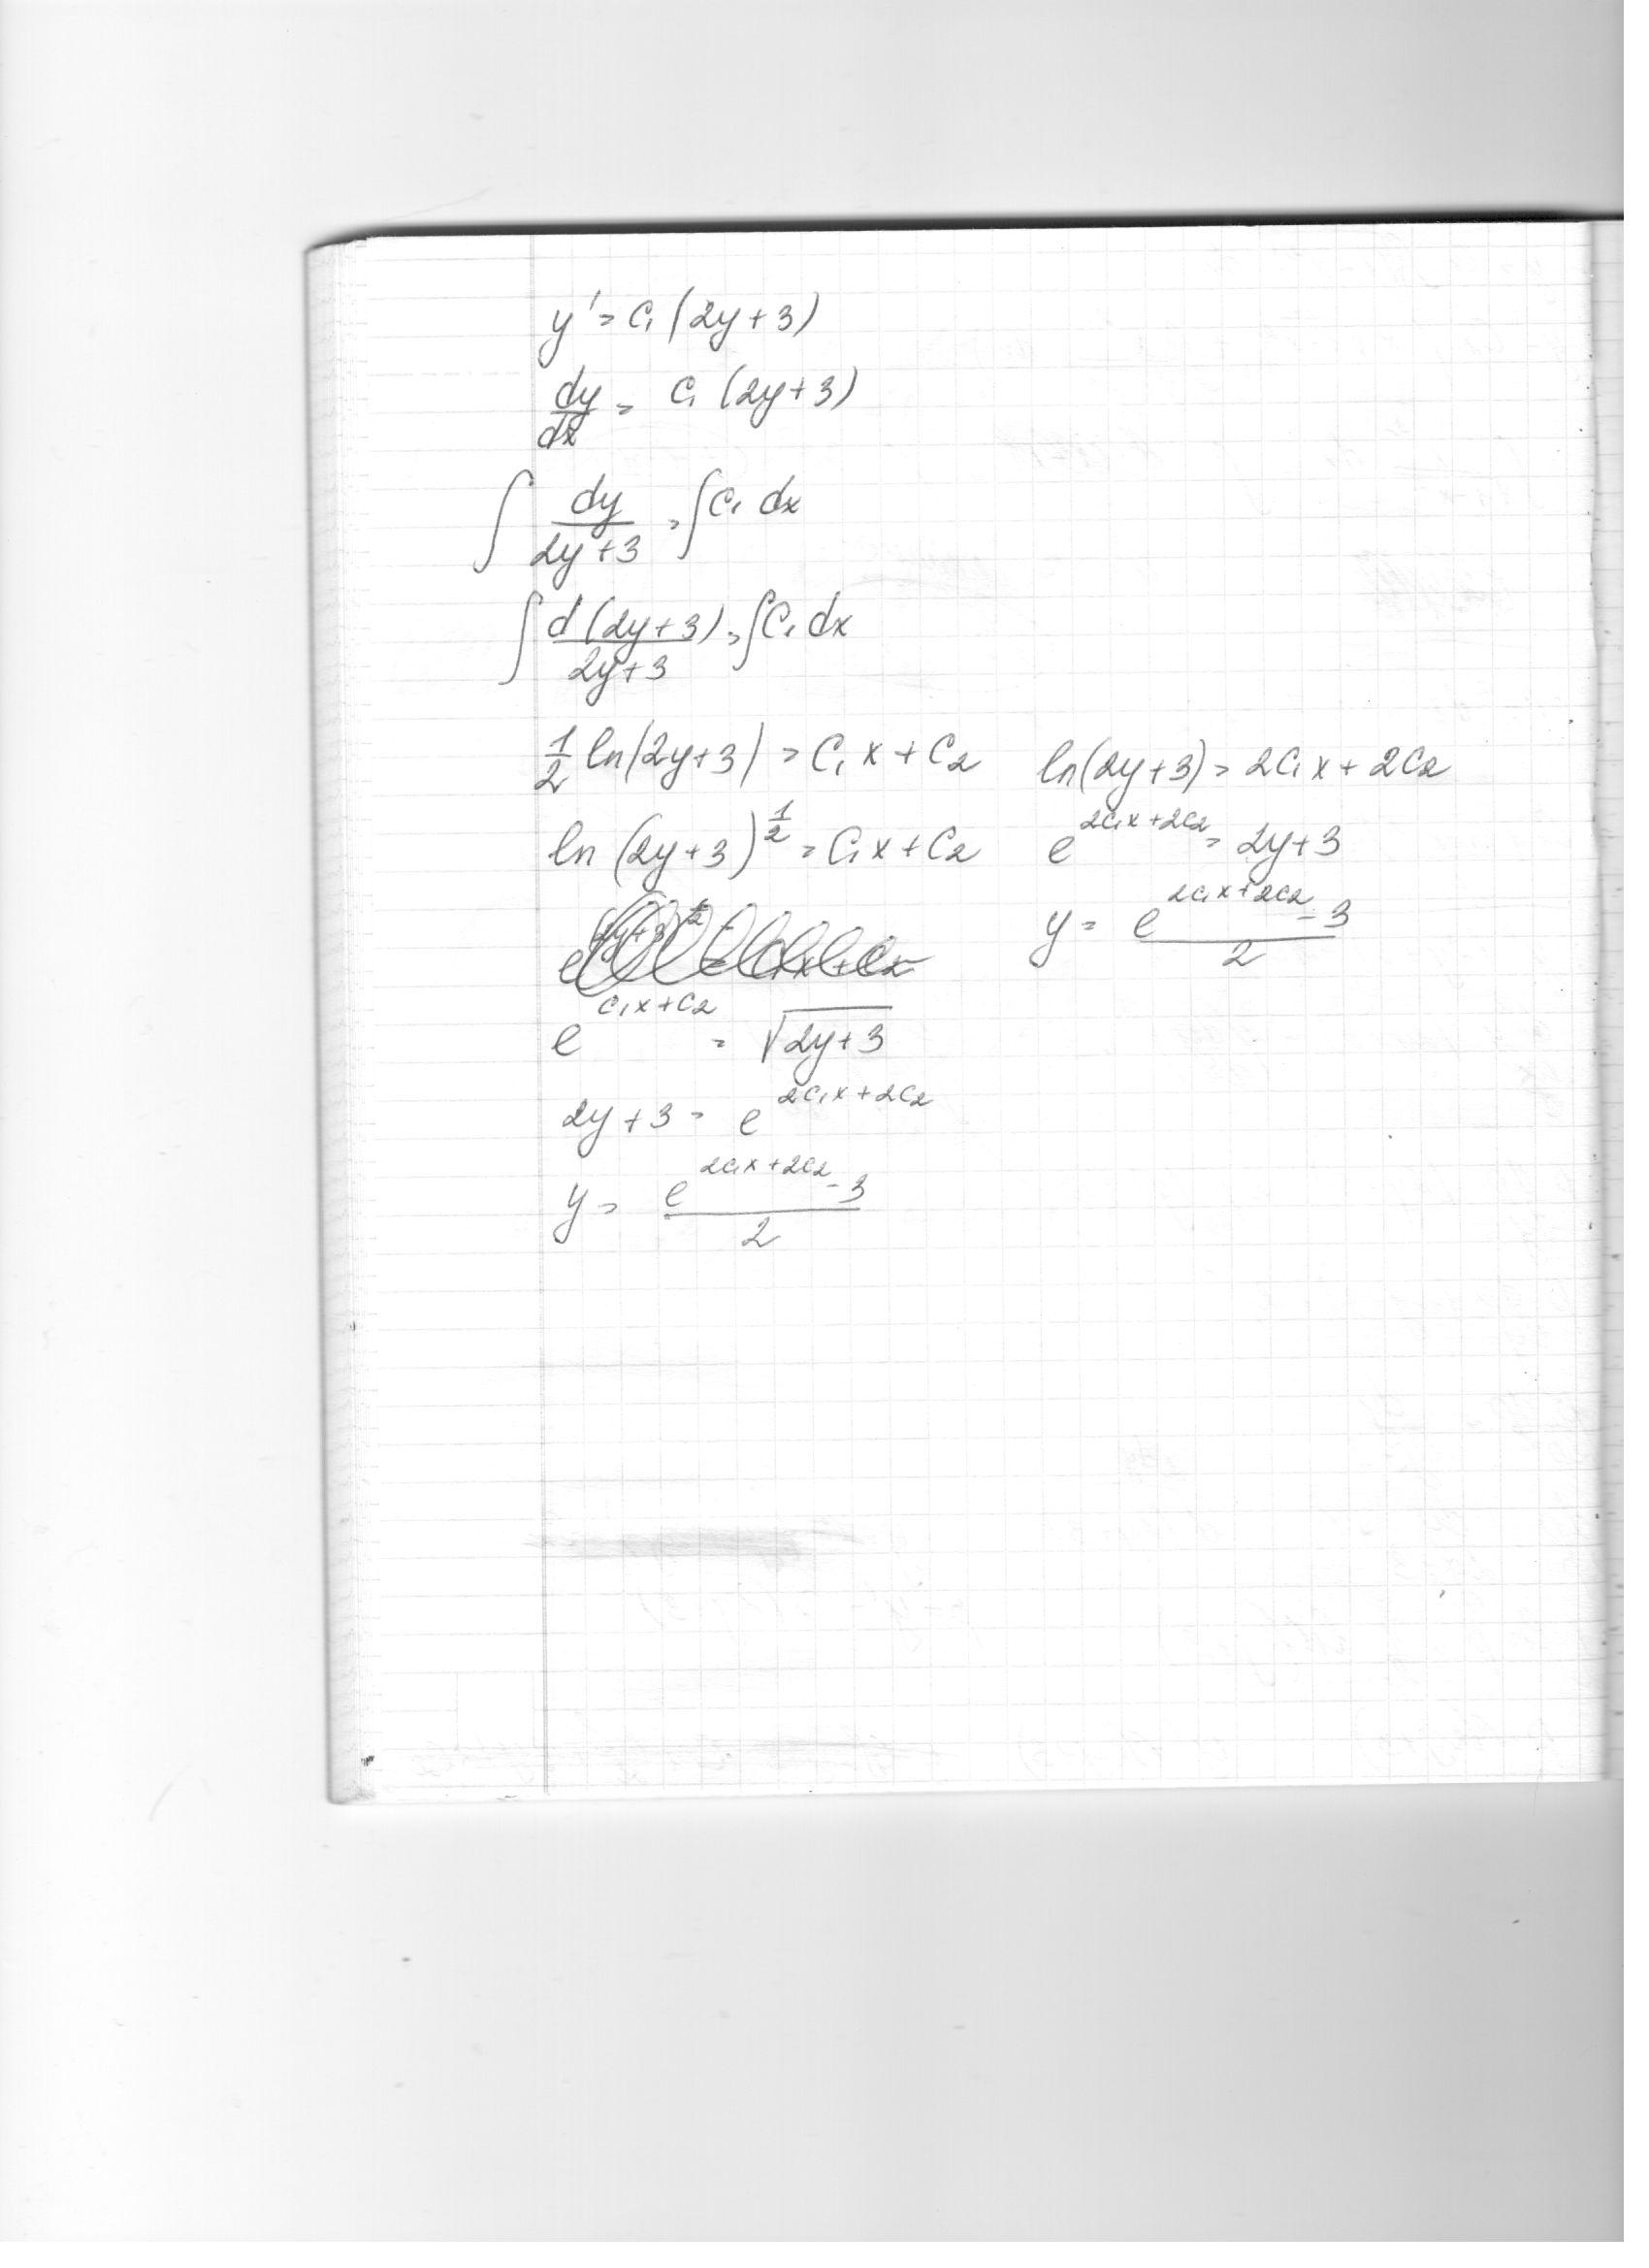 y' = C₁ (2y+3)
dy/dx = C₁ (2y+3)
∫ dy/(2y+3) = ∫ C₁ dx
∫ d(2y+3)/(2y+3) = ∫ C₁ dx
1/2 ln|2y+3| = C₁x + C₂
ln (2y+3)^(1/2) = C₁x + C₂
e^(C₁x+C₂) = √(2y+3)
2y+3 = e^(2C₁x+2C₂)
y = (e^(2C₁x+2C₂) - 3)/2
ln(2y+3) = 2C₁x + 2C₂
e^(2C₁x+2C₂) = 2y+3
y = (e^(2C₁x+2C₂) - 3)/2